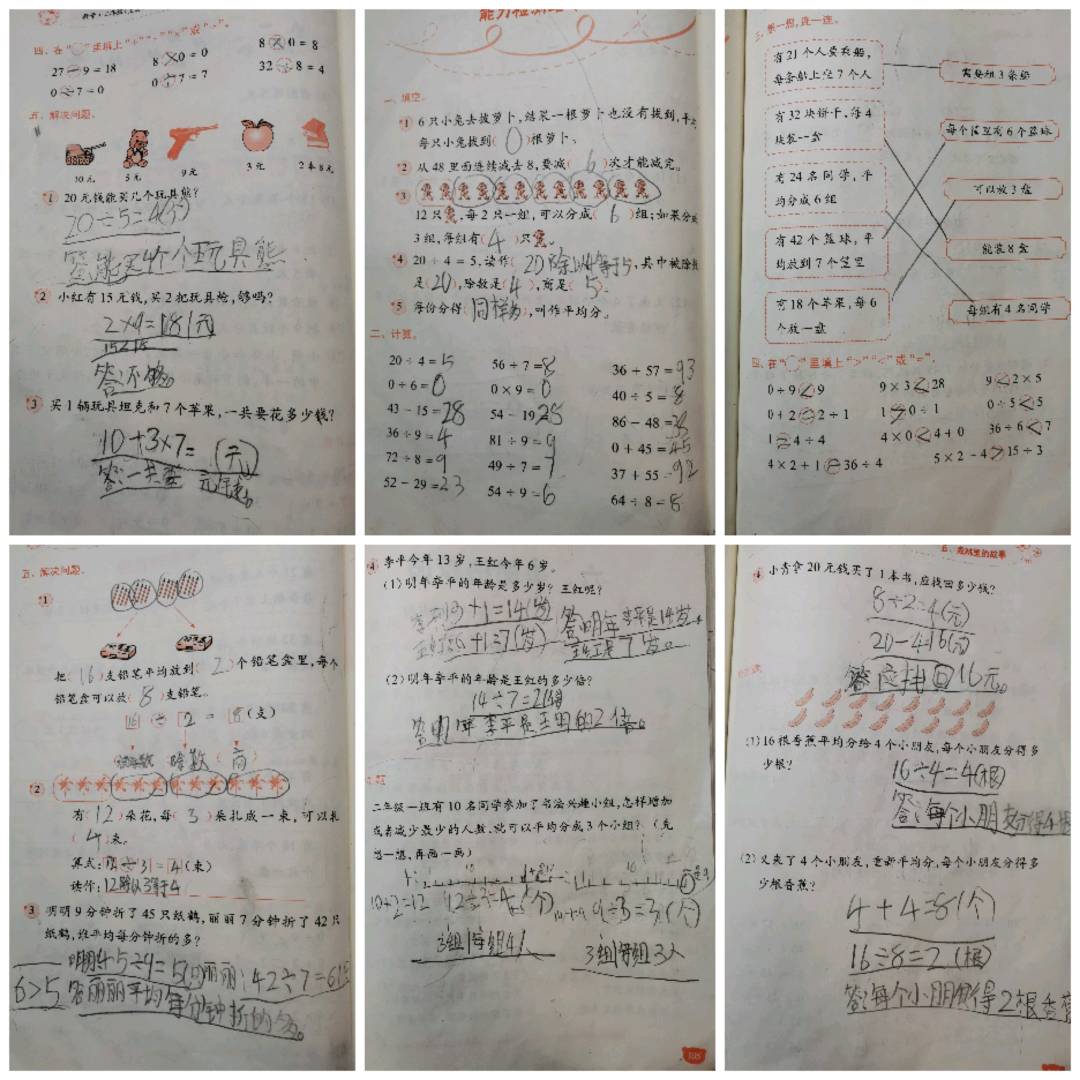 四、在“○”里填上“+”“-”“×”或“÷”。
27－9=18 8×0=0 8×0=8
0÷7=0 0÷7=7 32÷8=4
五、解决问题。
10元 5元 9元 3元 2本8元
1 20元钱能买几个玩具熊?
20÷5=4(个)
答:能买4个玩具熊
2 小红有15元钱,买2把玩具枪,够吗?
2×9=18(元)
答:不够。
3 买1辆玩具坦克和7个苹果,一共要花多少钱?
10+3×7= (元)
答:一共要 元钱。
能力检测
一、填空。
1 6只小兔去拔萝卜,结果一根萝卜也没有拔到,平均
每只小兔拔到(0)根萝卜。
2 从48里面连续减去8,要减(6)次才能减完。
3
12只,每2只一组,可以分成(6)组;如果分成
3组,每组有(4)只。
4 20÷4=5,读作(20除以4等于5),其中被除数
是(20),除数是(4),商是(5)。
5 每份分得(同样多),叫作平均分。
二、计算。
20÷4=5 56÷7=8 36+57=93
0÷6=0 0×9=0 40÷5=8
43-15=28 54-19=25 86-48=38
36÷9=4 81÷9=9 0+45=45
72÷8=9 49÷7=7 37+55=92
52-29=23 54÷9=6 64÷8=8
三、想一想,连一连。
有21个人要乘船,
每条船上坐7个人
需要租3条船
有32块饼干,每4
块装一盒
每个筐里有6个篮球
有24名同学,平
均分成6组
可以放3盘
有42个篮球,平
均放到7个筐里
能装8盒
有18个苹果,每6
个放一盘
每组有4名同学
四、在“○”里填上“>”“<”或“=”。
0÷9<9 9×3<28 9<2×5
0÷2=2÷1 0÷1 0÷5<5
1=4÷4 4×0<4+0 36÷6<7
4×2+1=36÷4 5×2-4>15÷3
五、解决问题。
1
把(16)支铅笔平均放到(2)个铅笔盒里,每个
铅笔盒可以放(8)支铅笔。
16÷2=8(支)
被除数 除数 (商)
2
有(12)朵花,每(3)朵扎成一束,可以扎
(4)束。
算式:12÷3=4(束)
读作:12除以3等于4
3 明明9分钟折了45只纸鹤,丽丽7分钟折了42只
纸鹤,谁平均每分钟折的多?
明明:45÷9=5(只)丽丽:42÷7=6(只)
6>5 答:丽丽平均每分钟折的多。
4 李平今年13岁,王红今年6岁。
(1)明年李平的年龄是多少岁?王红呢?
李平13+1=14(岁) 答:明年李平是14岁
王红6+1=7(岁) 王红是7岁。
(2)明年李平的年龄是王红的多少倍?
14÷7=2(倍)
答:明年李平是王红的2倍。
二年级一班有10名同学参加了书法兴趣小组,怎样增加
或者减少最少的人数,就可以平均分成3个小组?(先
想一想,再画一画)
10+2=12 12÷3=4(个) 10-1=9 9÷3=3(个)
3组每组4人 3组每组3人
105
五、森林里的故事
4 小方拿20元钱买了1本书,应找回多少钱?
8÷2=4(元)
20-4=16(元)
答:应找回16元。
(1)16根香蕉平均分给4个小朋友,每个小朋友分得多
少根?
16÷4=4(根)
答:每个小朋友分得4根
(2)又来了4个小朋友,重新平均分,每个小朋友分得多
少根香蕉?
4+4=8(个)
16÷8=2(根)
答:每个小朋友分得2根香蕉